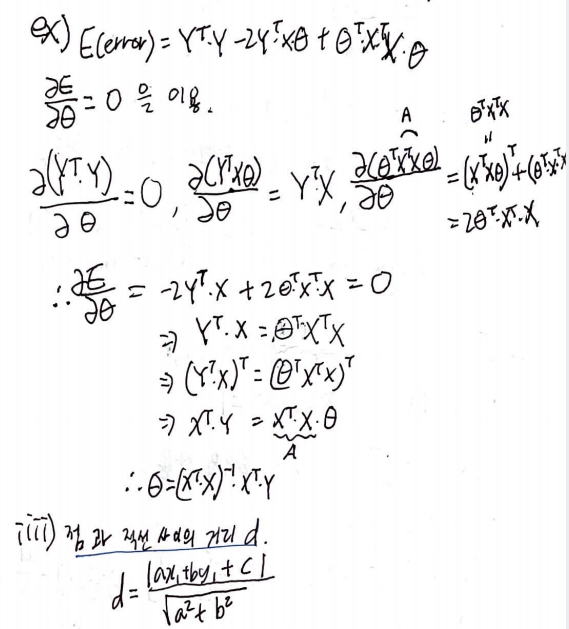 ex) E(error) = Yᵀ·Y - 2Yᵀ·Xθ + θᵀ·XᵀX·θ
∂E/∂θ = 0 을 이용.
A θᵀXᵀX
∂(Yᵀ·Y)/∂θ = 0, ∂(YᵀXθ)/∂θ = YᵀX, ∂(θᵀXᵀXθ)/∂θ = (XᵀXθ)ᵀ + (θᵀXᵀX
= 2θᵀ·Xᵀ·X
∴ ∂E/∂θ = -2Yᵀ·X + 2θᵀXᵀX = 0
⇒ Yᵀ·X = θᵀXᵀX
⇒ (YᵀX)ᵀ = (θᵀXᵀX)ᵀ
⇒ Xᵀ·Y = Xᵀ·X·θ
A
∴ θ = (XᵀX)⁻¹·Xᵀ·Y
iii) 점과 직선 사이의 거리 d.
d = |ax₁+by₁+c| / √(a²+b²)